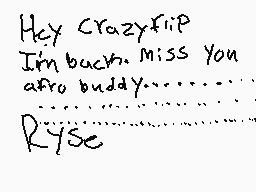 Hey crazyflip
I'm back. Miss you
afro buddy..........
......................
Ryse